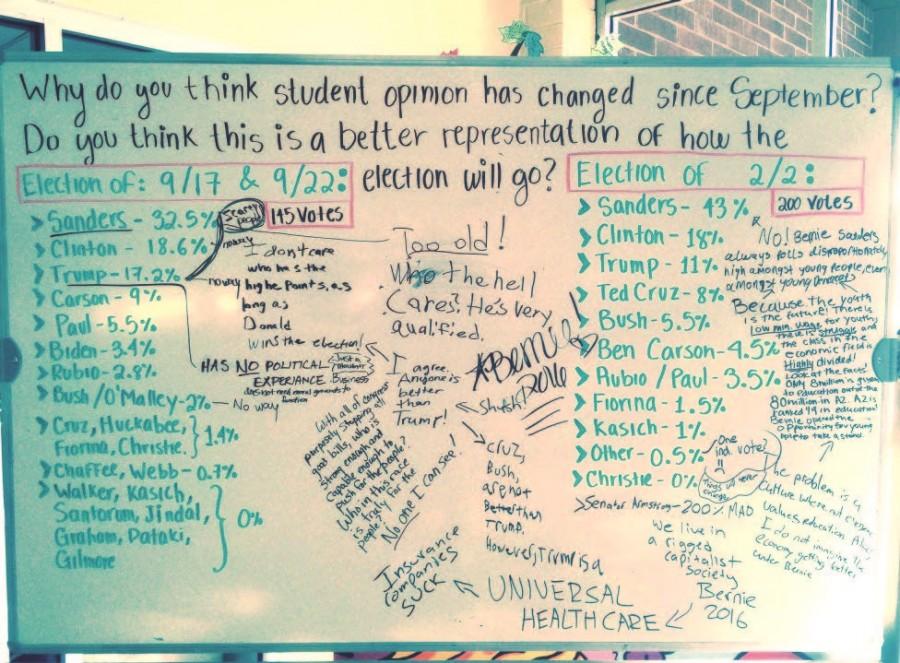 Why do you think student opinion has changed since September?
Do you think this is a better representation of how the
election will go?
Election of: 9/17 & 9/22:
145 Votes
> Sanders - 32.5%
> Clinton - 18.6%
> Trump - 17.2%
> Carson - 9%
> Paul - 5.5%
> Biden - 3.4%
> Rubio - 2.8%
> Bush/O'Malley - 2%
> Cruz, Huckabee,
Fiorina, Christie. } 1.4%
> Chaffee, Webb - 0.7%
> Walker, Kasich,
Santorum, Jindal, } 0%
Graham, Pataki,
Gilmore
Scary
people
noway
noway
No way
I dont care
who has the
highe Points, as
long as
Donald
wins the election!
HAS NO POLITICAL
EXPERIENCE.
Business
does not need moral grounds to
function
Too old!
Who the hell
Cares? He's very
qualified.
I
agree.
Anyone is
better
than
Trump!
*Bernie!
2016
Shhh!
cruz,
Bush,
are not
Better then
Trump.
However, Trump is a
With all of congress
purposely stopping all
good bills, who is
strong enough and
capable enough to
push for the people?
Who in this race
is truly for the
people?
No one I can see!
Insurance
companies
SUCK
UNIVERSAL
HEALTHCARE
Election of 2/2:
200 votes
> Sanders - 43%
> Clinton - 18%
> Trump - 11%
> Ted Cruz - 8%
> Bush - 5.5%
> Ben Carson - 4.5%
> Rubio/Paul - 3.5%
> Fiorina - 1.5%
> Kasich - 1%
> Other - 0.5%
> Christie - 0%
> Senator Armstrong - 200% MAD
No! Bernie Sanders
always polls disproportionately
high amongst young people, even
amongst young
Because the youth
is the future! There is
Low min. wage for youth,
there is struggle and
the class in the
economic field is
Highly divided!
Look at the facts!
Only 8 million is given
to education out of the
80 million in AZ. AZ is
ranked 49 in education!
Bernie opened the
opportunity for young
people to take a stand.
One
ind. vote?
The problem is a
culture where
values education.
I do not imagine the
economy getting better
under Bernie
We live in
a rigged
capitalist
society
Bernie
2016